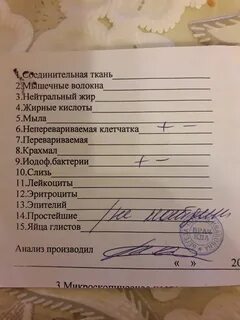 1.Соединительная ткань
2.Мышечные волокна
3.Нейтральный жир
4.Жирные кислоты
5.Мыла
6.Непереваримаемая клетчатка + -
7.Перевариваемая
8.Крахмал
9.Иодоф.бактерии + -
10.Слизь
11.Лейкоциты
12.Эритроциты
13.Эпителий
14.Простейшие
15.Яйца глистов
Анализ производил
« » 20
3.Микроскопическое